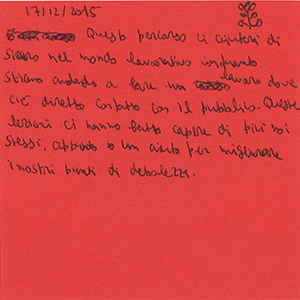 17/12/2015
Questo percorso ci aiuterà di
sicuro nel mondo lavorativo in quanto
stiamo andando a fare un lavoro dove
c'è diretto contatto con il pubblico. Queste
lezioni ci hanno fatto capire di più noi
stessi, aiuto per migliorare
i nostri punti di debolezza.